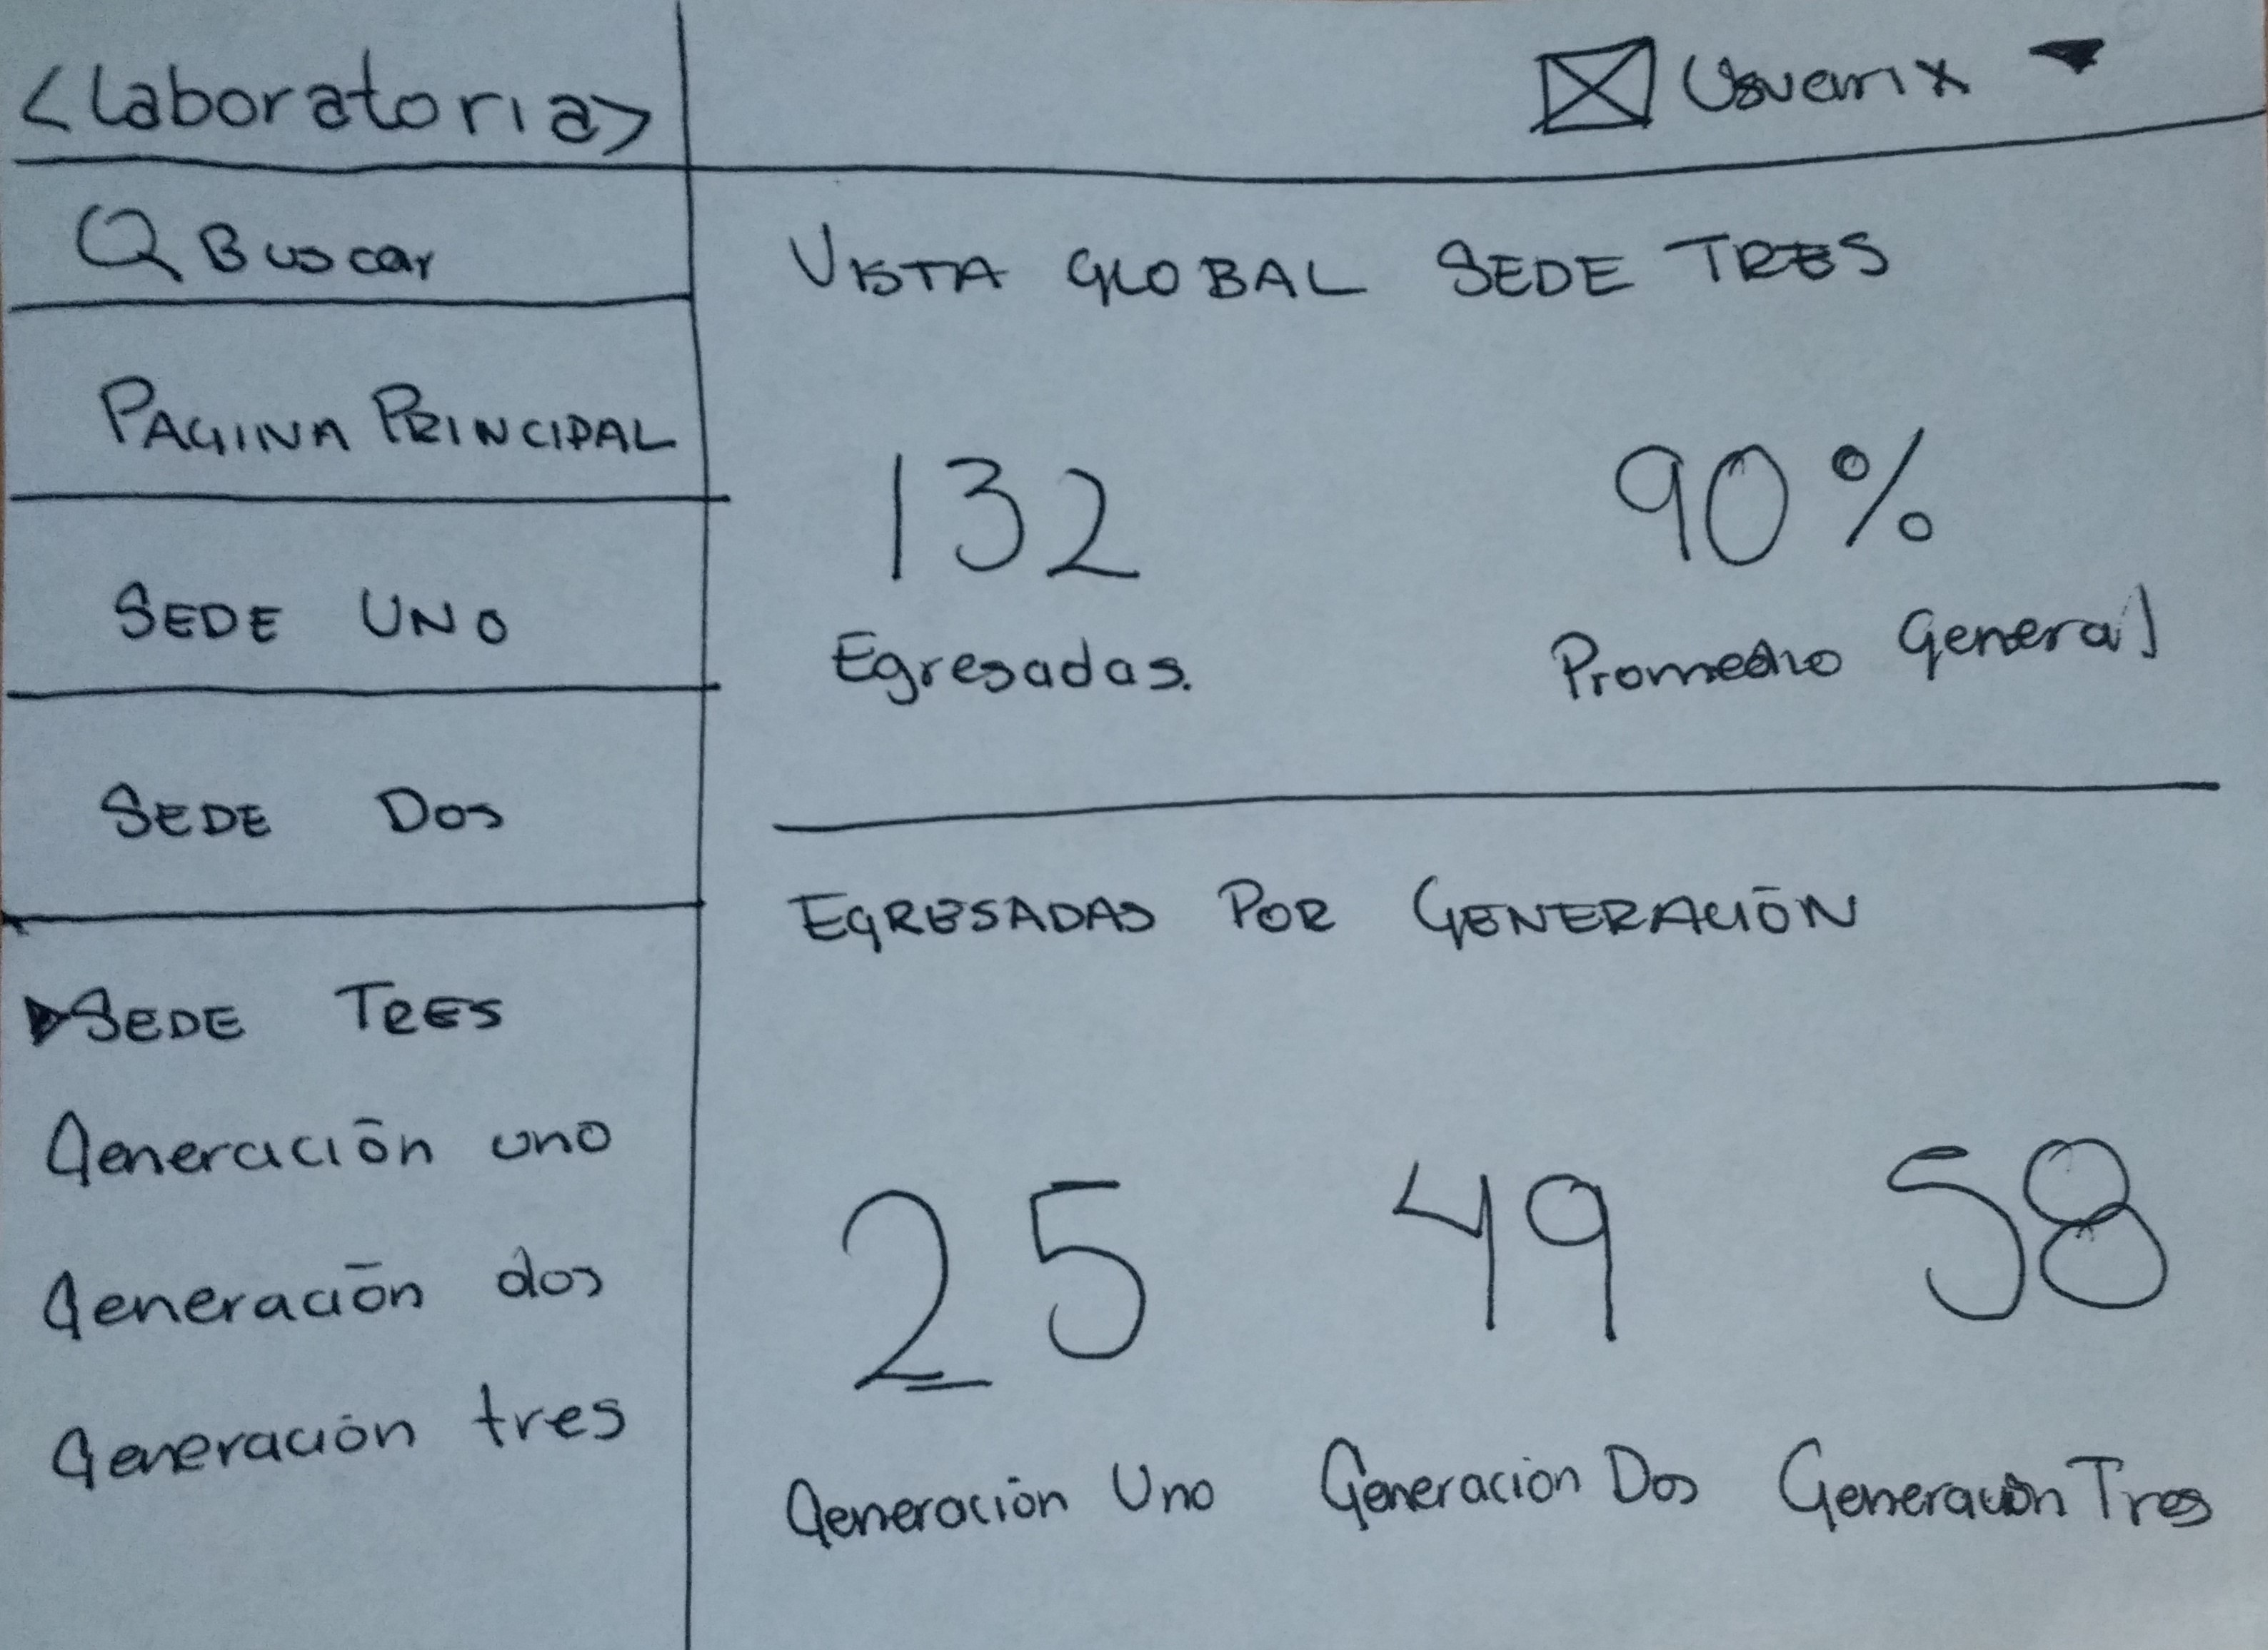 <Laboratoria>
Usuarix
Buscar
PAGINA PRINCIPAL
SEDE UNO
SEDE DOS
SEDE TRES
Generación uno
Generación dos
Generación tres
VISTA GLOBAL SEDE TRES
132
Egresadas.
90%
Promedio General
EGRESADAS POR GENERACIÓN
25
49
58
Generación Uno
Generación Dos
Generación Tres